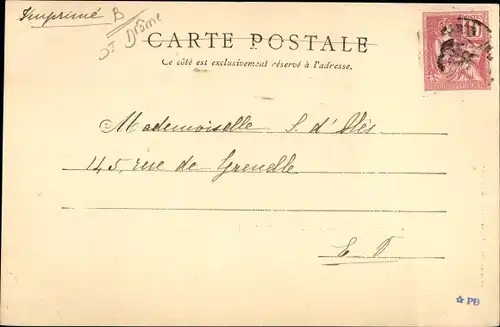 Imprimé B
Drôme
CARTE POSTALE
Ce côté est exclusivement réservé à l'adresse.
Mademoiselle S. d'Alès
145, rue de Grenelle
E
PB